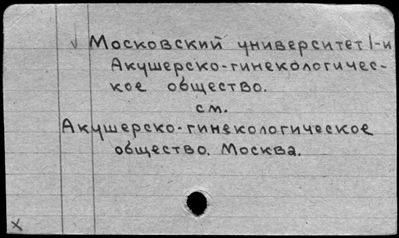 √ Московский университет 1-й
Акушерско-гинекологичес-
кое общество.
см.
Акушерско-гинекологическое
общество. Москва.
x